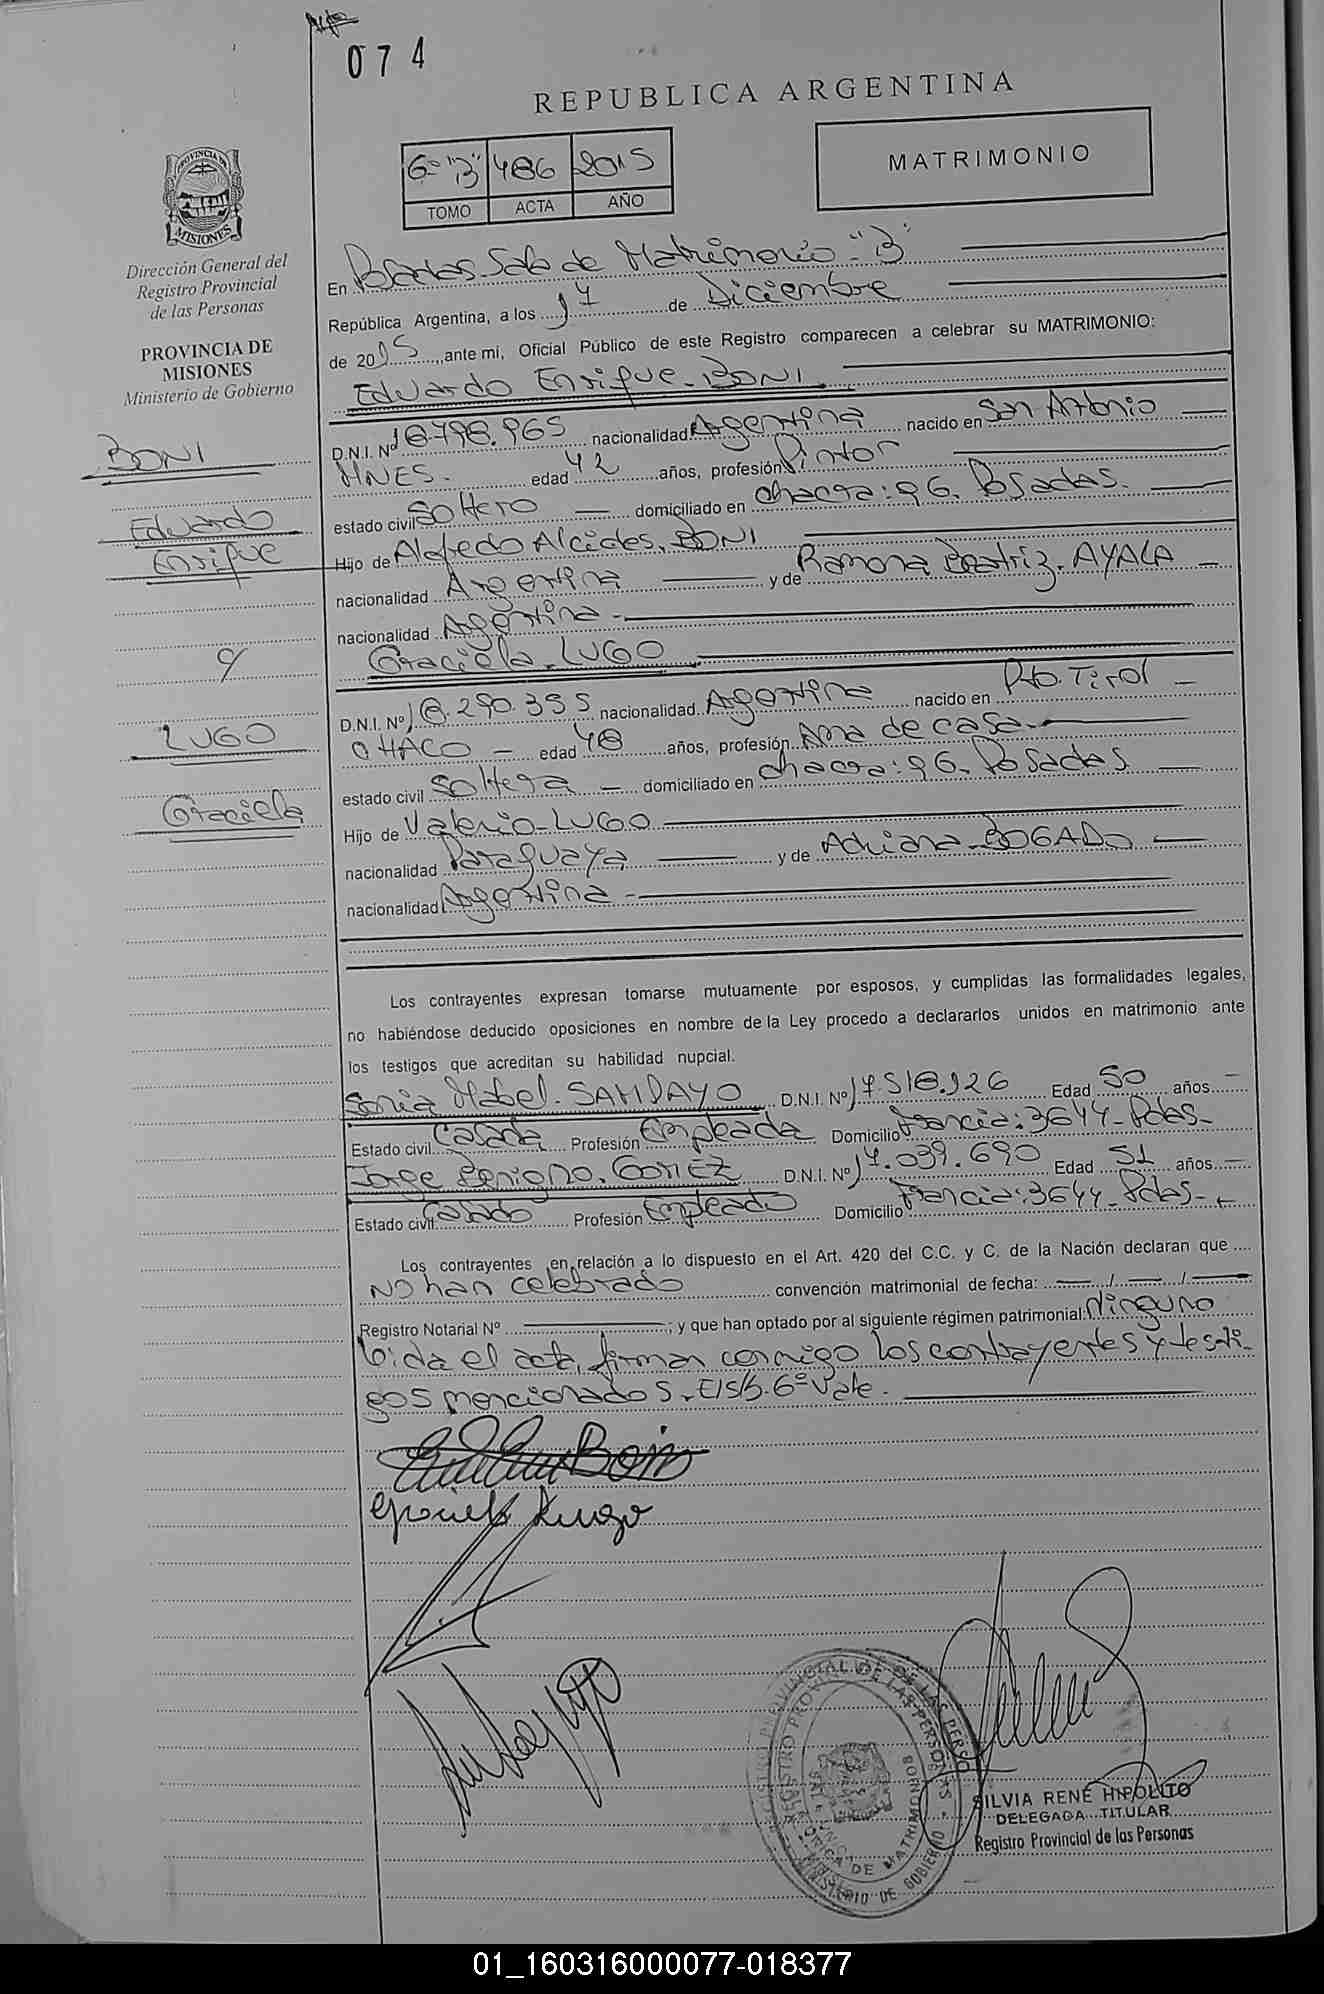 074
REPUBLICA ARGENTINA
6º "B" 486 2015
TOMO ACTA AÑO
MATRIMONIO
PROVINCIA DE
MISIONES
Dirección General del
Registro Provincial
de las Personas
PROVINCIA DE
MISIONES
Ministerio de Gobierno
BONI
Eduardo
Enrique
c/
LUGO
Graciela
En Posadas Sala de Matrimonio - "B"
República Argentina, a los 17 de Diciembre
de 2015, ante mi, Oficial Público de este Registro comparecen a celebrar su MATRIMONIO:
Eduardo Enrique BONI
D.N.I. Nº nacionalidad Argentina nacido en San Antonio
MNES. edad 42 años, profesión Pintor
estado civil Soltero — domiciliado en chacra: 96. Posadas.
Hijo de Alfredo Alcides. BONI
nacionalidad Argentina y de Ramona Beatriz. AYALA —
nacionalidad Argentina -
Graciela - LUGO
D.N.I. Nº 18.290.355 nacionalidad Argentina nacido en Pto. Tirol —
CHACO — edad 48 años, profesión Ama de casa -
estado civil Soltera — domiciliado en chacra: 96. Posadas
Hijo de Valerio - LUGO
nacionalidad Paraguaya y de Adriana - BOGADO —
nacionalidad Argentina -
Los contrayentes expresan tomarse mutuamente por esposos, y cumplidas las formalidades legales,
no habiéndose deducido oposiciones en nombre de la Ley procedo a declararlos unidos en matrimonio ante
los testigos que acreditan su habilidad nupcial.
Sonia Mabel. D.N.I. Nº 17.518.126 Edad 50 años. —
Estado civil Casada Profesión Empleada Domicilio Francia: 3644 - Pdas -
Jorge Benigno. GOMEZ D.N.I. Nº 17.039.690 Edad 51 años. —
Estado civil Casado Profesión Empleado Domicilio Francia: 3644 - Pdas -
Los contrayentes en relación a lo dispuesto en el Art. 420 del C.C. y C. de la Nación declaran que ....
No han celebrado convención matrimonial de fecha: — / — / —
Registro Notarial Nº ; y que han optado por al siguiente régimen patrimonial: Ninguno
Leida el acta, firman conmigo los contrayentes y testi-
gos mencionados. E/S/b. 6º Vale.
Boni
Graciela Lugo
REGISTRO PROVINCIAL DE LAS PERSONAS
MINISTERIO DE GOBIERNO
SILVIA RENE HIPOLITO
DELEGADA TITULAR
Registro Provincial de las Personas
01_160316000077-018377